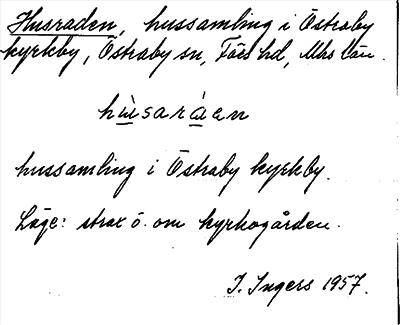 Husraden, hussamling i Östraby
kyrkby, Östraby sn, Färs hd, Mhs län.
hùsaràen
hussamling i Östraby kyrkby.
Läge: strax ö. om kyrkogården.
I. Ingers 1957.